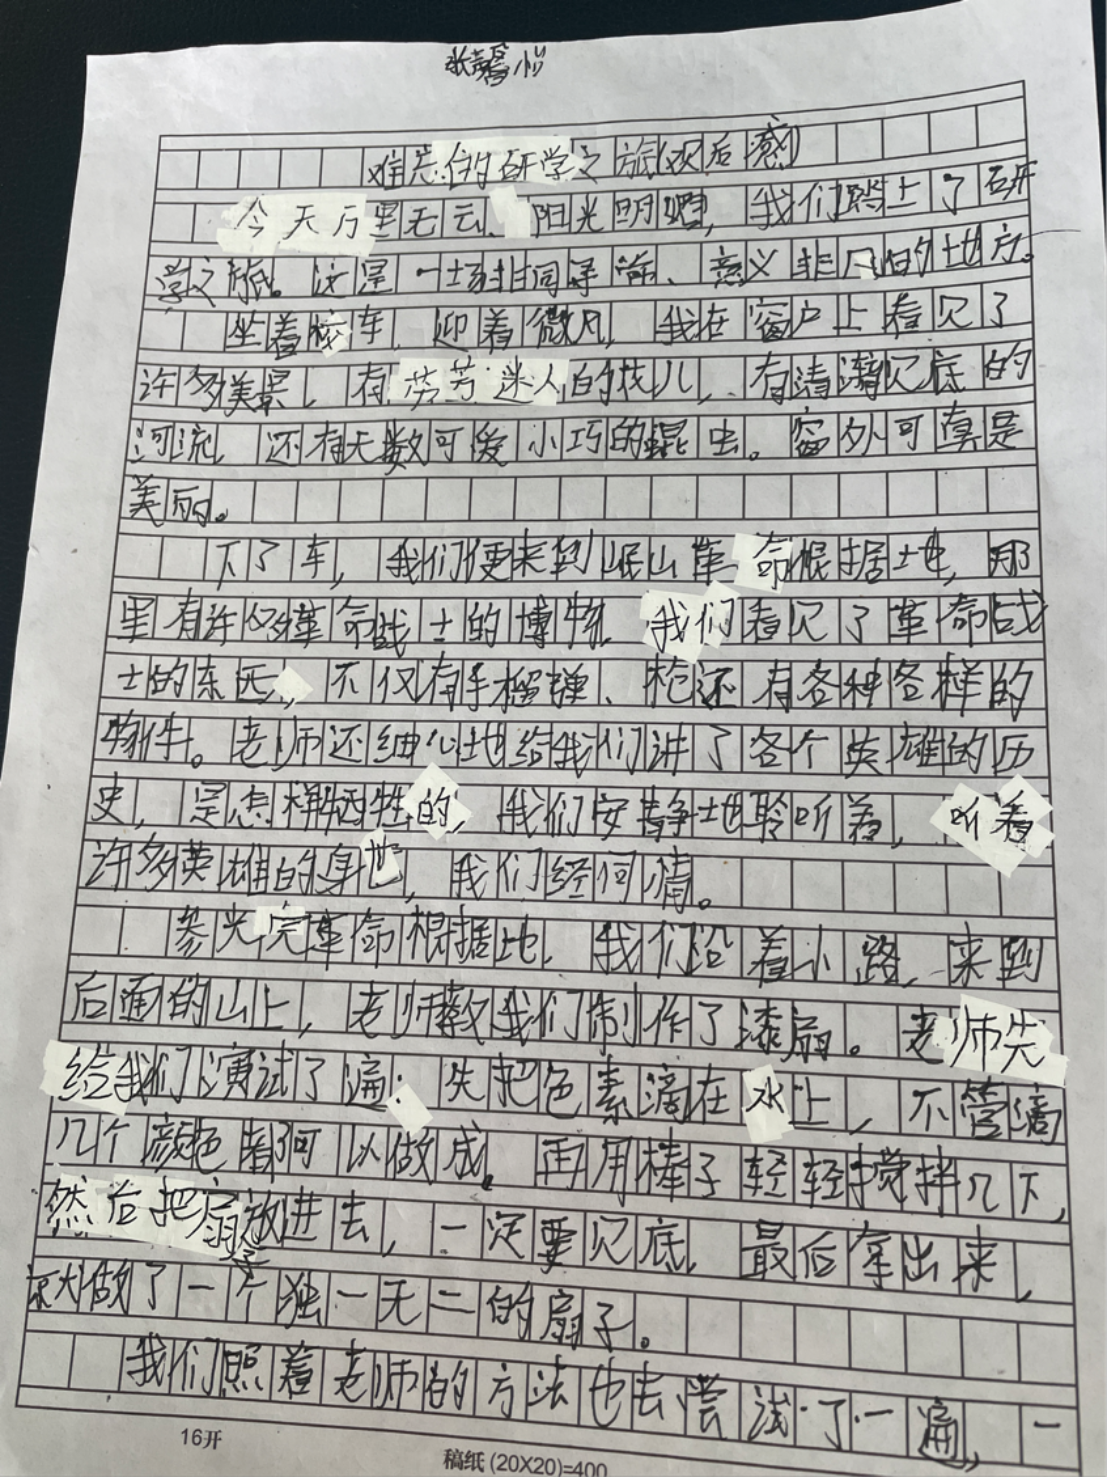 张馨心
难忘的研学之旅(观后感)
今天万里无云、阳光明媚,我们踏上了研
学之旅。这是一场非同寻常、意义非凡的地方。
坐着校车,迎着微风,我在窗户上看见了
许多美景,有芬芳迷人的花儿,有清澈见底的
河流,还有无数可爱小巧的昆虫。窗外可真是
美丽。
下了车,我们便来到岷山革命根据地,那
里有许多革命战士的博物,我们看见了革命战
士的东西,不仅有手榴弹、枪还有各种各样的
物件。老师还细心地给我们讲了各个英雄的历
史,是怎样牺牲的,我们安静地聆听着,听着
许多英雄的身世,我们经何情。
参光完革命根据地,我们沿着小路,来到
后面的山上,老师教我们制作了漆扇。老师先
给我们演试了遍:先把色素滴在水上,不管滴
几个颜色都可以做成。再用棒子轻轻搅拌几下,
然后把扇子放进去,一定要见底,最后拿出来,
就做了一个独一无二的扇子。
我们照着老师的方法也去尝试了一遍,一
16开
稿纸(20X20)=400